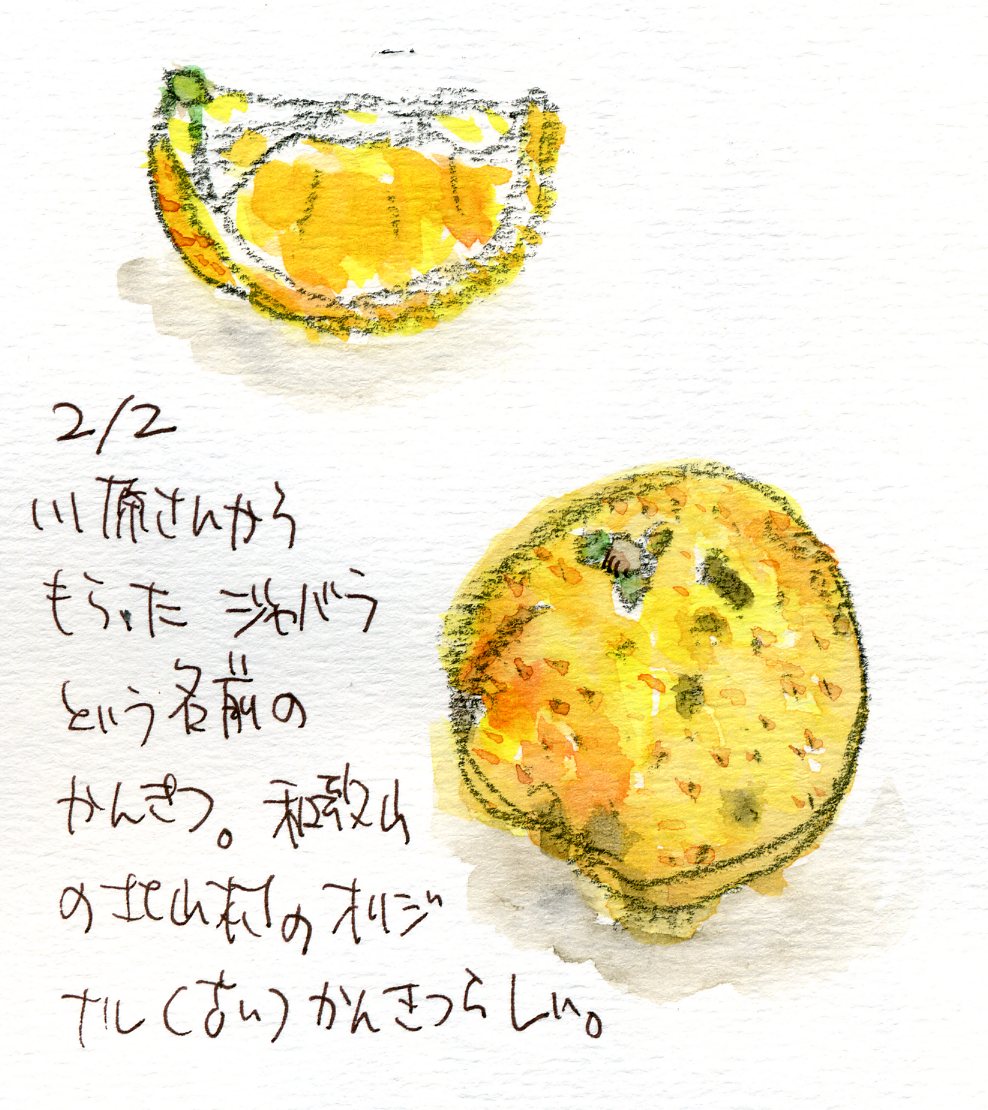 2/2
川原さんから
もらった ジャバラ
という名前の
かんきつ。和歌山
の北山村のオリジ
ナル(古い)かんきつらしい。